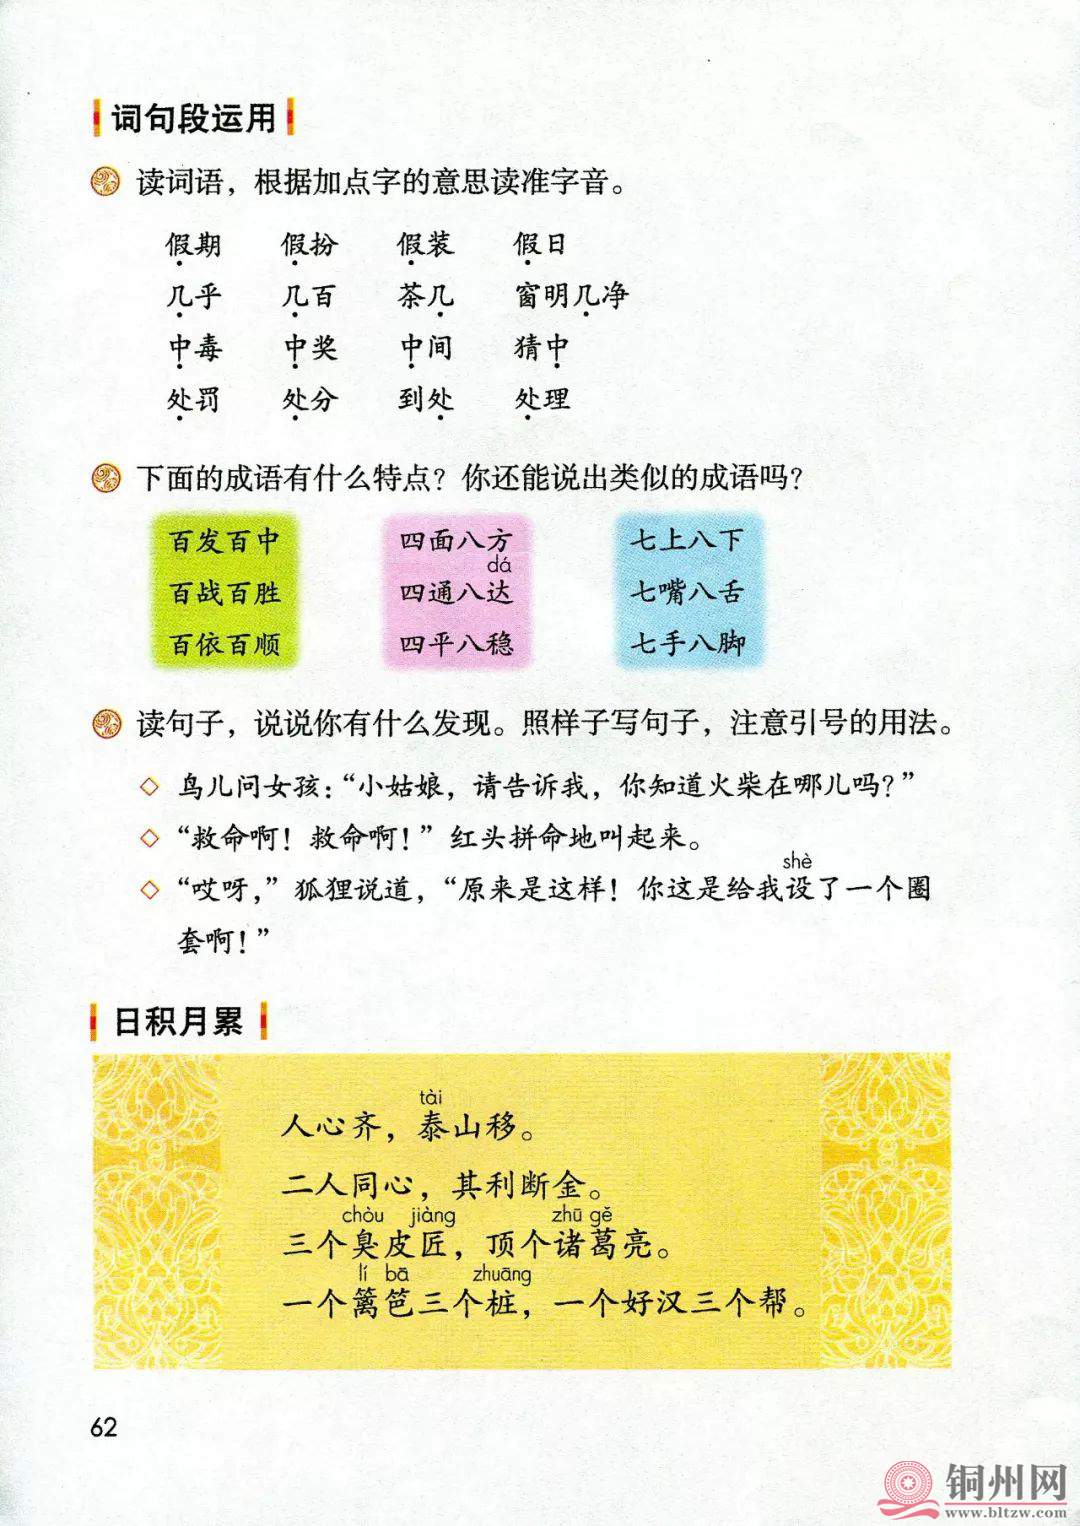 词句段运用
读词语，根据加点字的意思读准字音。
假期 假扮 假装 假日
几乎 几百 茶几 窗明几净
中毒 中奖 中间 猜中
处罚 处分 到处 处理
下面的成语有什么特点？你还能说出类似的成语吗？
百发百中 四面八方 七上八下
dá
百战百胜 四通八达 七嘴八舌
百依百顺 四平八稳 七手八脚
读句子，说说你有什么发现。照样子写句子，注意引号的用法。
◇ 鸟儿问女孩：“小姑娘，请告诉我，你知道火柴在哪儿吗？”
◇ “救命啊！救命啊！”红头拼命地叫起来。
shè
◇ “哎呀，”狐狸说道，“原来是这样！你这是给我设了一个圈
套啊！”
日积月累
tài
人心齐，泰山移。
二人同心，其利断金。
chòu jiàng zhū gě
三个臭皮匠，顶个诸葛亮。
lí bā zhuāng
一个篱笆三个桩，一个好汉三个帮。
62
铜州网
www.bltzw.com